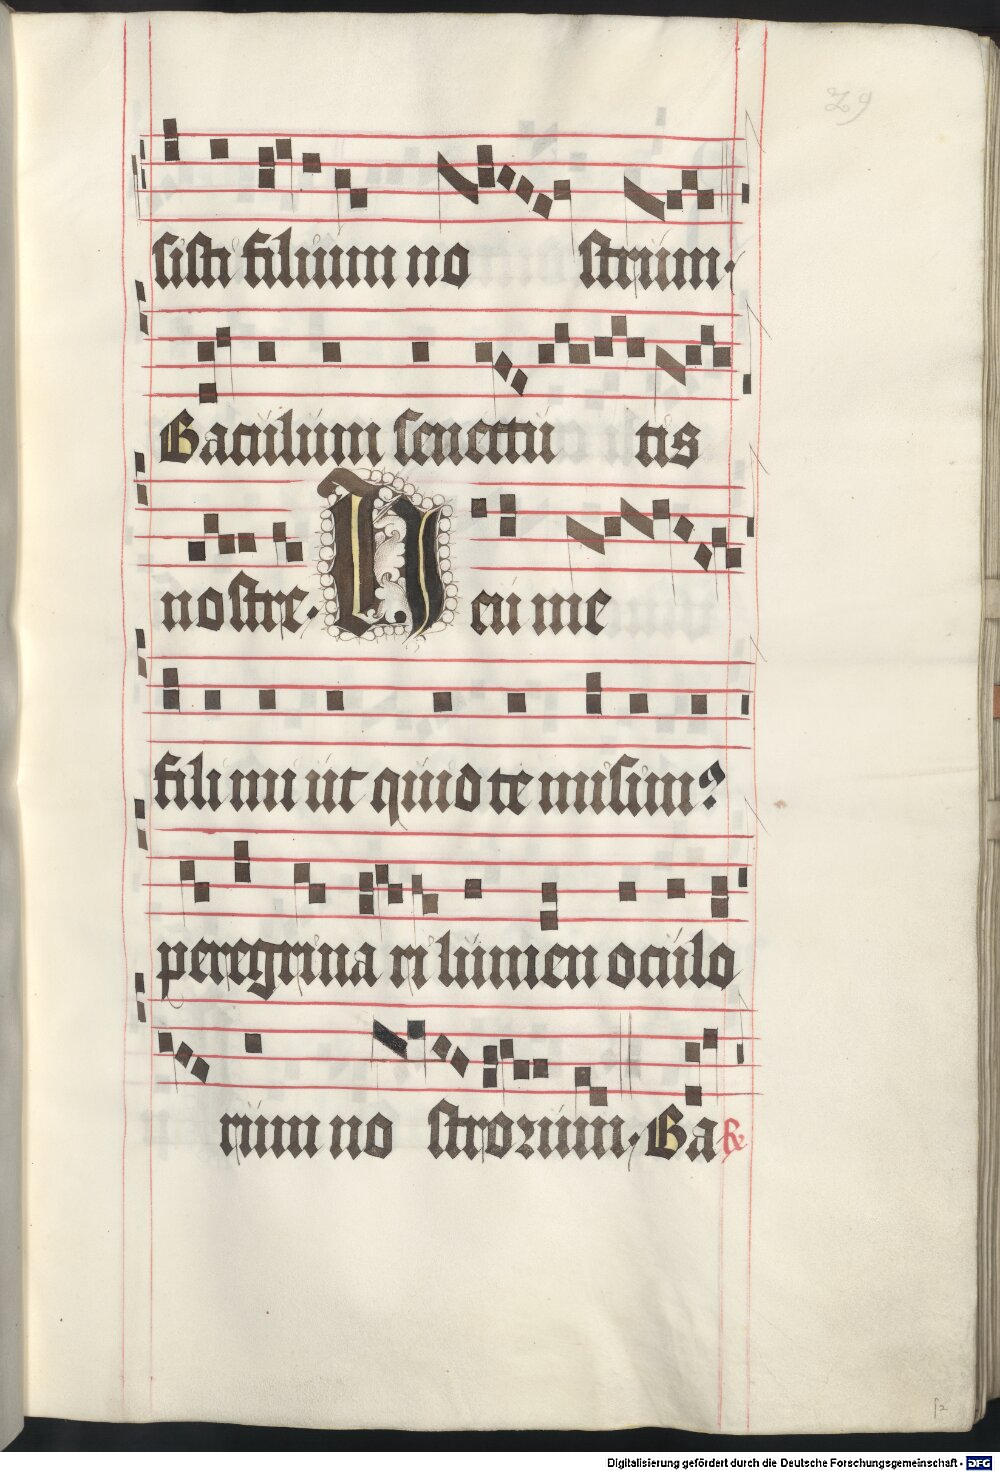 29
sisti filium no strum.
Baculum senectu tis
nostre. Heu me
fili mi ut quid te misim?
peregrina ri lumen oculo
rum no strorum. Ba &
Digitalisierung gefördert durch die Deutsche Forschungsgemeinschaft - DFG